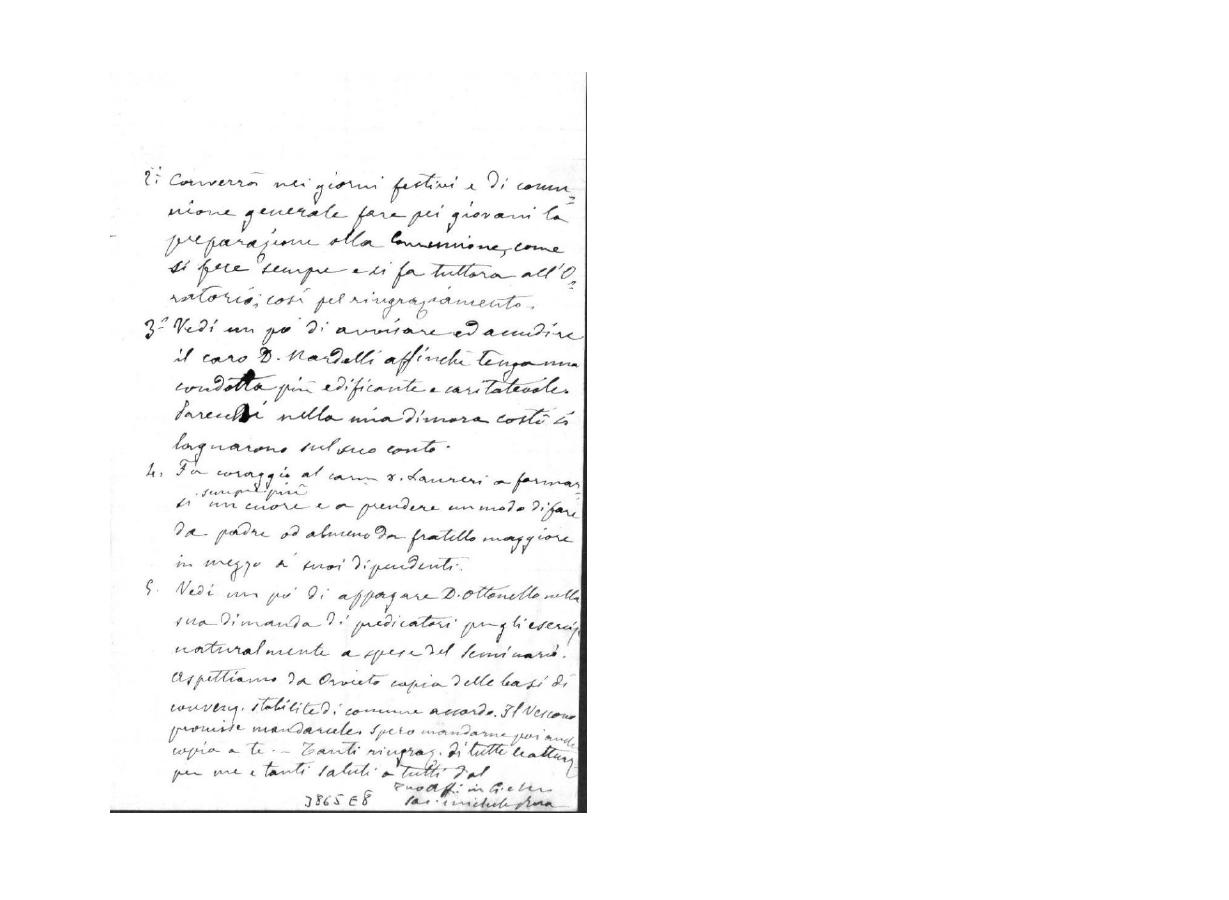 2.° Converrà nei giorni festivi e di comu=
nione generale fare pei giovani la
preparazione alla Communione, come
si fece sempre e si fa tuttora all'O=
ratorio; così pel ringraziamento.
3.° Vedi un po' di avvisare ed accudire
il caro D. Nardelli affinchè tenga una
condotta più edificante e caritatevole.
Parecchi nella mia dimora costì si
lagnarono sul suo conto.
4. Fa coraggio al caro D. Laureri a formar=
si sempre più un cuore e a prendere un modo di fare
da padre od almeno da fratello maggiore
in mezzo a' suoi dipendenti.
5. Vedi un po' di appagare D. Ottonello nella
sua dimanda di predicatori per gli eserciz
naturalmente a spese del Seminario.
Aspettiamo da Orvieto copia delle basi di
converg. stabilite di comune accordo. Il Vescovo
promise mandarcele. Spero mandarne poi anche
copia a te. — Tanti ringraz. di tutte le attenz
per me e tanti saluti a tutti dal
Tuo Aff. in G.
Sac. Michele Rua
3865 E8